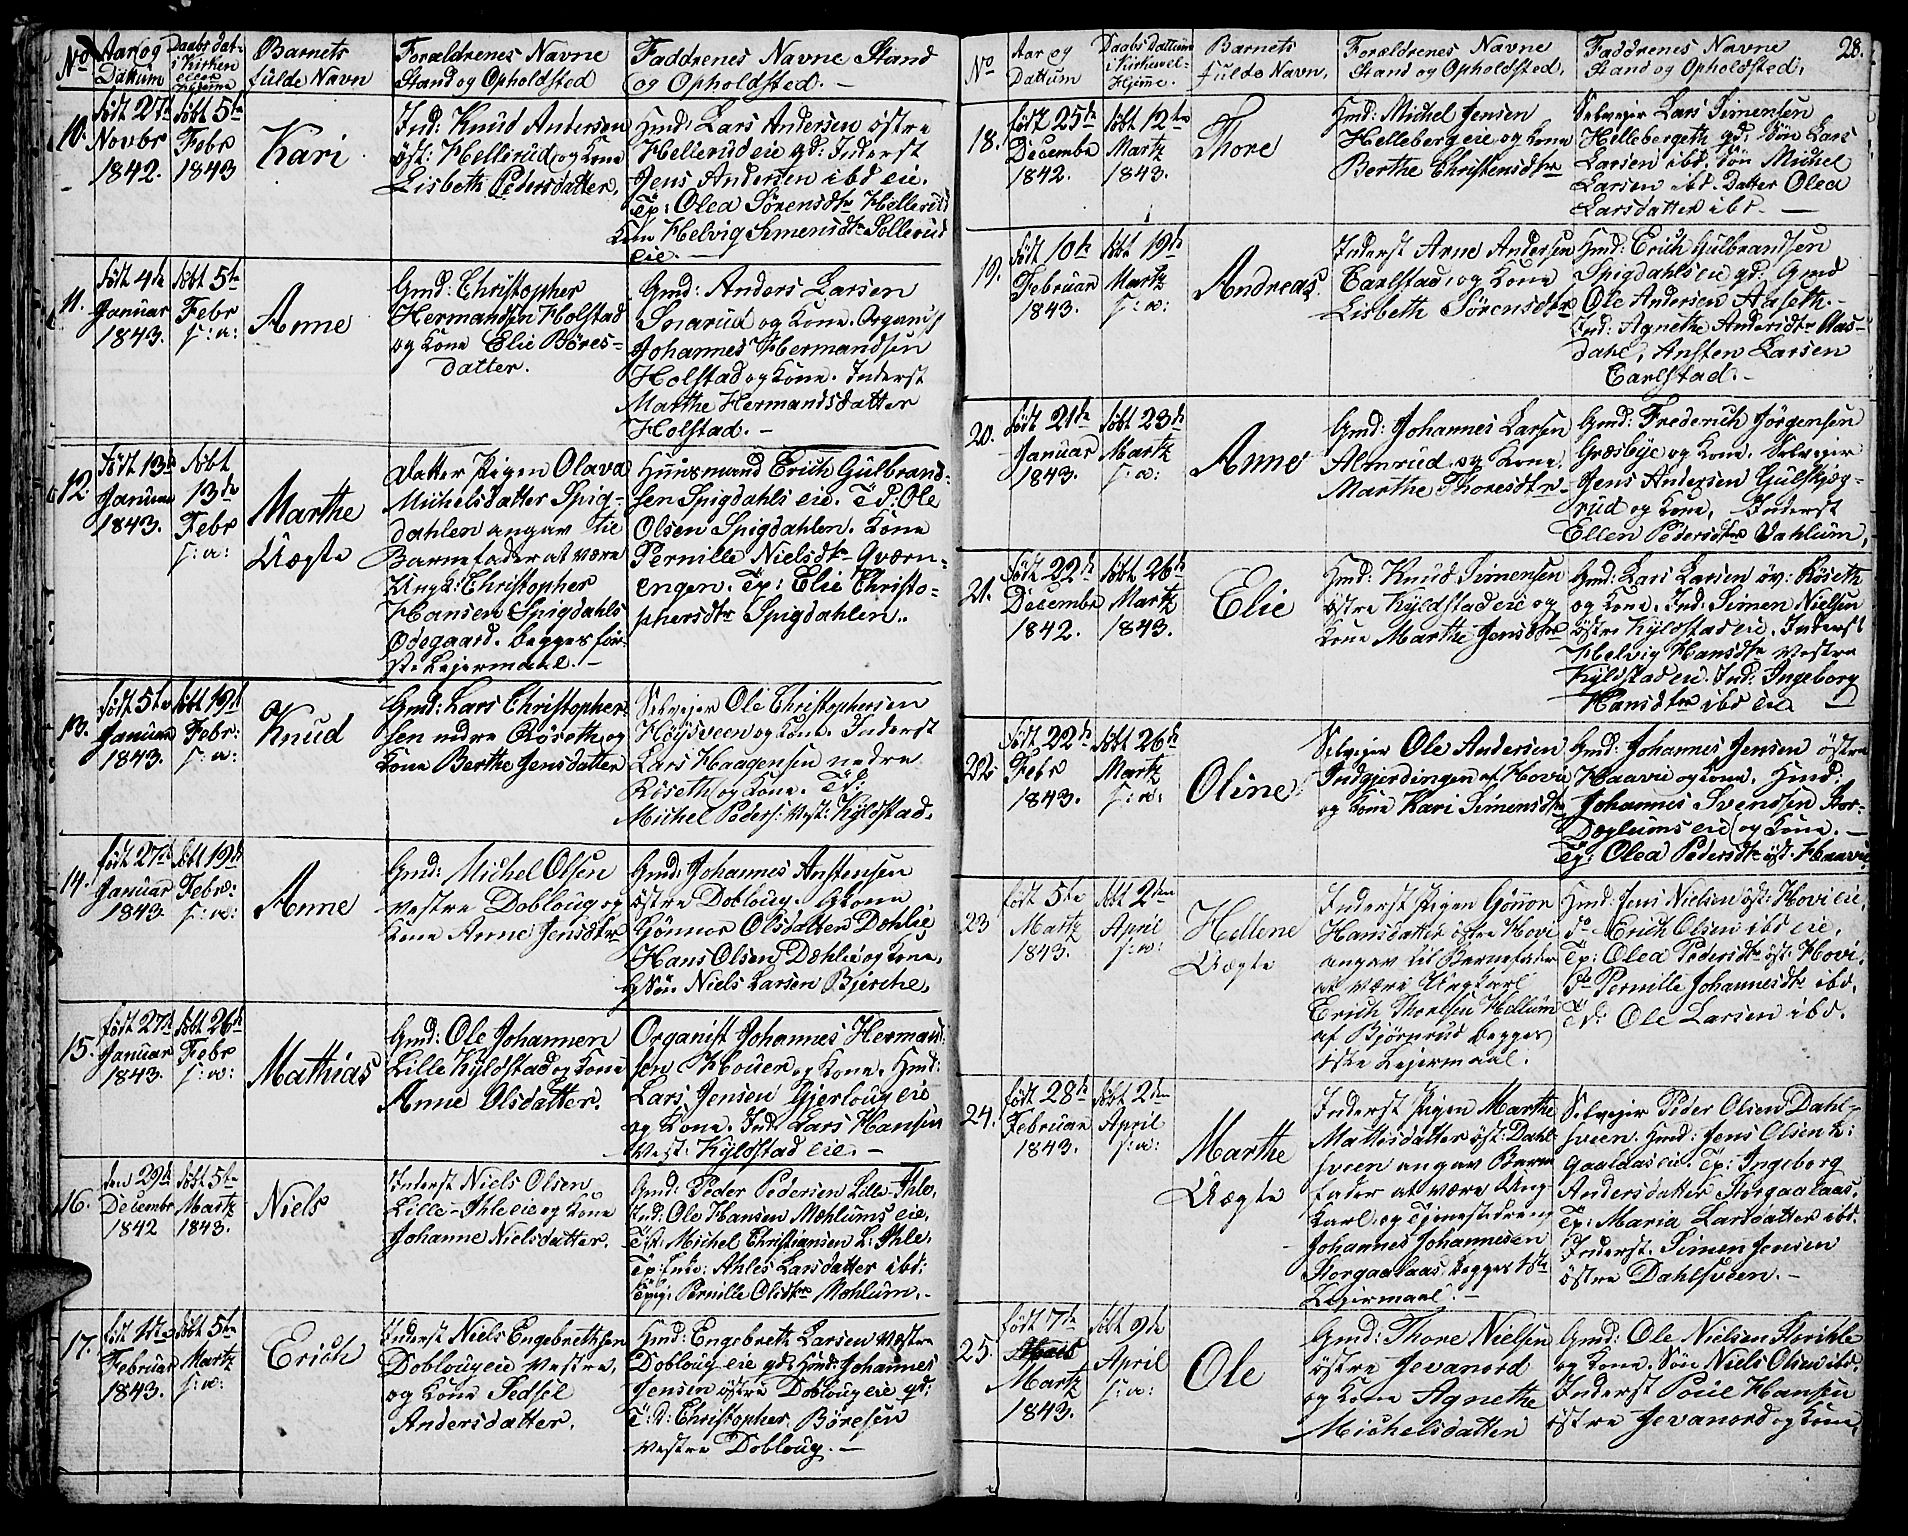 No
Aar og
Dattum
Daabs dat-
i Kirken
eller
Hjeme
Barnets
fulde Navn
Forældrenes Navne
Stand og Opholdsted
Faddrenes Navne Stand
og Opholdsted. -
10.
født 27de
Novbr
1842.
døbt 5te
Febr
1843
Kari
Ind: Knud Andersen
øst: Hellerud og Kone
Lisbeth Pedersdatter.
Hmd: Lars Andersen østre
Hellerud eie gd: Inderst
Jens Andersen ibd eie.
Tp: Olea Sørensdtr Hellerud
Kone Helvig Simensdtr Sollerud
eie. -
11.
født 4de
Januar
1843.
døbt 5te
Febr
s: a:
Anne
Gmd: Christopher
Hermandsen Holstad
og Kone Elie Børes-
datter.
Gmd: Anders Larsen
Snarud og Kone. Organist
Johannes Hermandsen
Holstad og Kone. Inderst
Marthe Hermandsdatter
Holstad. -
12.
Født 13de
Januar
1843.
døbt
13de
Febr
s: a:
Marthe
Uægte
datter Pigen Olava
Michelsdatter Spig-
dahlen angav til
Barnefader at være
Ungk: Christopher
Hansen Spigdahls
Ødegaard. begges før-
ste Lejermaal. -
Huusmand Erich Gulbrand-
sen Spigdahls eie. T.D: Ole
Olsen Spigdahlen. Kone
Pernille Nielsdtr Qværn-
engen. Tp: Elie Christo-
phersdtr Spigdahlen..
13.
født 5te
Januar
1843.
døbt 19de
Febr:
s: a:
Knud
Gmd: Lars Christopher-
sen nedre Røseth og
Kone Berthe Jensdatter
Selvejer Ole Christophersen
Høysveen og Kone. Inderst
Lars Haagensen nedre
Röseth og Kone. T.d:
Michel Peders: Vest: Kyldstad.
14.
født 27de
Januar
1843
døbt 19de
Febr:
s: a:
Anne
Gmd: Michel Olsen
vestre Dobloug og
Kone Anne Jensdtr
Gmd: Johannes Anstensen
østre Dobloug. Gkone
Gønnor Olsdatter Dæhlie
Hans Olsen Dæhlie og Kone.
Søn Niels Larsen Bjerche.
15.
født 27de
Januar
1843.
døbt 26de
Febr
s: a:
Mathias
Gmd: Ole Johannen
Lille Kyldstad og Kone
Anne Olsdatter.
Organist Johannes Hermand-
sen og Kone. Hmd:
Lars Jensen Bjerloug eie
og Kone. Ind: Lars Hansen
Vest: Kyldstad eie. -
16.
den 29de
Decembr
1842
døbt 5te
Martz
1843.
Niels
Inderst Niels Olsen
Lille-Ihle eie og Kone
Johanne Nielsdatter.
Gmd: Peder Pedersen Lille-Ihle.
Ind: Ole Hansen Mæhlums eie.
Michel Christiansen L: Ihle.
Ahles Larsdatter ibd:
Pernille Olsdtr Mæhlum. -
17.
født
Februar
1843.
døbt 5te
Martz
s: a:
Erich
Inderst Niels Engebrethsen
Dobloug eie Vestre,
og Kone Sedsel
Andersdatter.
Hmd: Engebreth Larsen Væstre
Dobloug eie gd: Hmd: Johannes
Jensen østre Dobloug eie gd:
T:D: Christopher Børesen
vestre Dobloug. -
28.
No
Aar og
Dattum
Daabs Dattum
i Kirke vel-
Hjeme.
Barnets
fulde Navn.
Forældrenes Navne
Stand og Opholdsted.
Faddrenes Navne
Stand og Opholdsted.
18.
født 25de
Decembr
1842.
døbt 12te
Martz
1843.
Thore
Hmd: Michel Jensen
Helleberg eie og Kone
Berthe Christensdtr
Selvejer Lars Simensen
Hellebergeth gd: Søn Lars
Larsen ibd. Søn Michel
Larsen ibd. Datter Olea
Larsdatter ibd. -
19.
født 10de
Februar
1843.
døbt 19de
Martz
s: a:
Andreas
Inderst Arne Andersen
Carlstad, og Kone
Lisbeth Sørensdtr
Hmd: Erich Gulbrandsen
Spigdahls eie gd: Gmd
Ole Andersen Aaseth. -
Ind: Agnethe Andersdtr Aas-
dahl, Ansten Larsen
Carlstad. -
20.
født 21de
Januar
1843.
døbt 23de
Martz
s: a:
Anne
Gmd: Johannes Larsen
Almrud og Kone.
Marthe Thoresdtr
Gmd: Frederich Jørgensen
Græsbye og Kone. Selvejer
Jens Andersen Gulskjøg-
rud og Kone. Inderst
Ellen Pedersdtr Dahlum.
21.
født 22de
Decembr
1842.
døbt 26de
Martz
1843.
Elie
Hmd: Knud Simensen
østre Kyldstad eie og
Kone Marthe Jensdtr
Gmd: Lars Larsen øv: Röseth
og Kone. Ind: Simen Nielsen
østre Kyldstad eie. Inderst
Helvig Hansdtr Vestre
Kyldstad eie. Ind: Ingeborg
Hansdtr ibd eie. -
22.
født 22de
Febr
1843.
døbt 26de
Martz
s: a:
Oline
Selvejer Ole Andersen
Indgjerdingen af Hovi
og Kone Kari Simensdtr
Gmd: Johannes Jensen østre
Haavie og Kone. Hmd:
Johannes Svendsen Stor-
Dæhlums eie og Kone. -
Tp: Olea Pedersdtr öst: Haavie.
23
født 5te
Martz
1843.
døbt 2den
April
s: a:
Hellene
Uægte
Inderst Pigen Gönor
Hansdatter østre Hovi
angav til Barnefader
at være Ungkarl
Erich Thorsen Hellum
af Bjørnrud begges
1ste Lejermaal.
Hmd: Jens Nielsen öst: Hovi eie,
do Erich Olsen ibd eie,
Tp: Olea Pedersdtr öst: Hovi.
do Pernille Johannesdtr ibd.
T.D: Ole Larsen ibd.
24.
født 28de
Februar
1843.
døbt 2den
April
s: a:
Marthe
Uægte
Inderst Pigen Marthe
Mattisdatter öst: Dahl-
sveen angav Barne
fader at være Ung-
Karl og Tjenestedreng
Johannes Johannesen
Storgaalaas, begges 1ste
Lejermaal. -
Selvejer Peder Olsen Dahl-
sveen. Hmd: Jens Olsen L:
Gaalaas eie. Tp: Ingeborg
Andersdatter Storgaalaas.
Tp: Maria Larsdatter ibd.
Inderst. Simen Jensen
østre Dahlsveen. -
25.
født 7de
Martz
1843.
døbt 9de
April
s: a:
Ole
Gmd: Thore Nielsen
østre Jevanord
og Kone Agnethe
Michelsdatter
Gmd: Ole Nielsen Storihle
og Kone. Søn Niels Olsen ibd.
Inderst Poul Hansen
østre Jevanord og Kone.